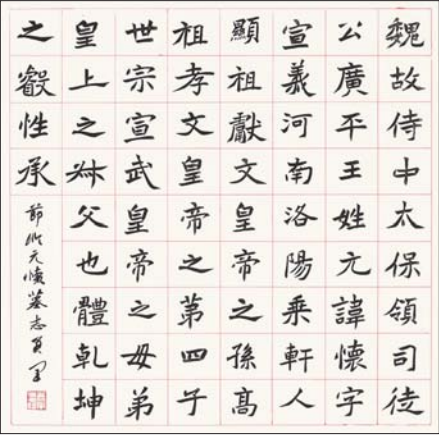 魏故侍中太保領司徒
公廣平王姓元諱懷字
宣義河南洛陽乘軒人
顯祖獻文皇帝之孫高
祖孝文皇帝之第四子
世宗宣武皇帝之母弟
皇上之叔父也體乹坤
之叡性承
節臨元懷墓志